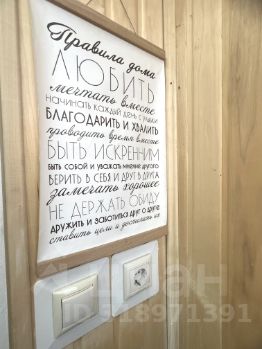 Правила дома
ЛЮБИТЬ
мечтать вместе
начинать каждый день с улыбки
БЛАГОДАРИТЬ И ХВАЛИТЬ
проводить время вместе
БЫТЬ ИСКРЕННИМ
быть собой и уважать мнение другого
ВЕРИТЬ В СЕБЯ И ДРУГ В ДРУГА
замечать хорошее
НЕ ДЕРЖАТЬ ОБИДУ
дружить и заботиться друг о друге
ставить цели и достигать их
ЦИАН
ID 518971391